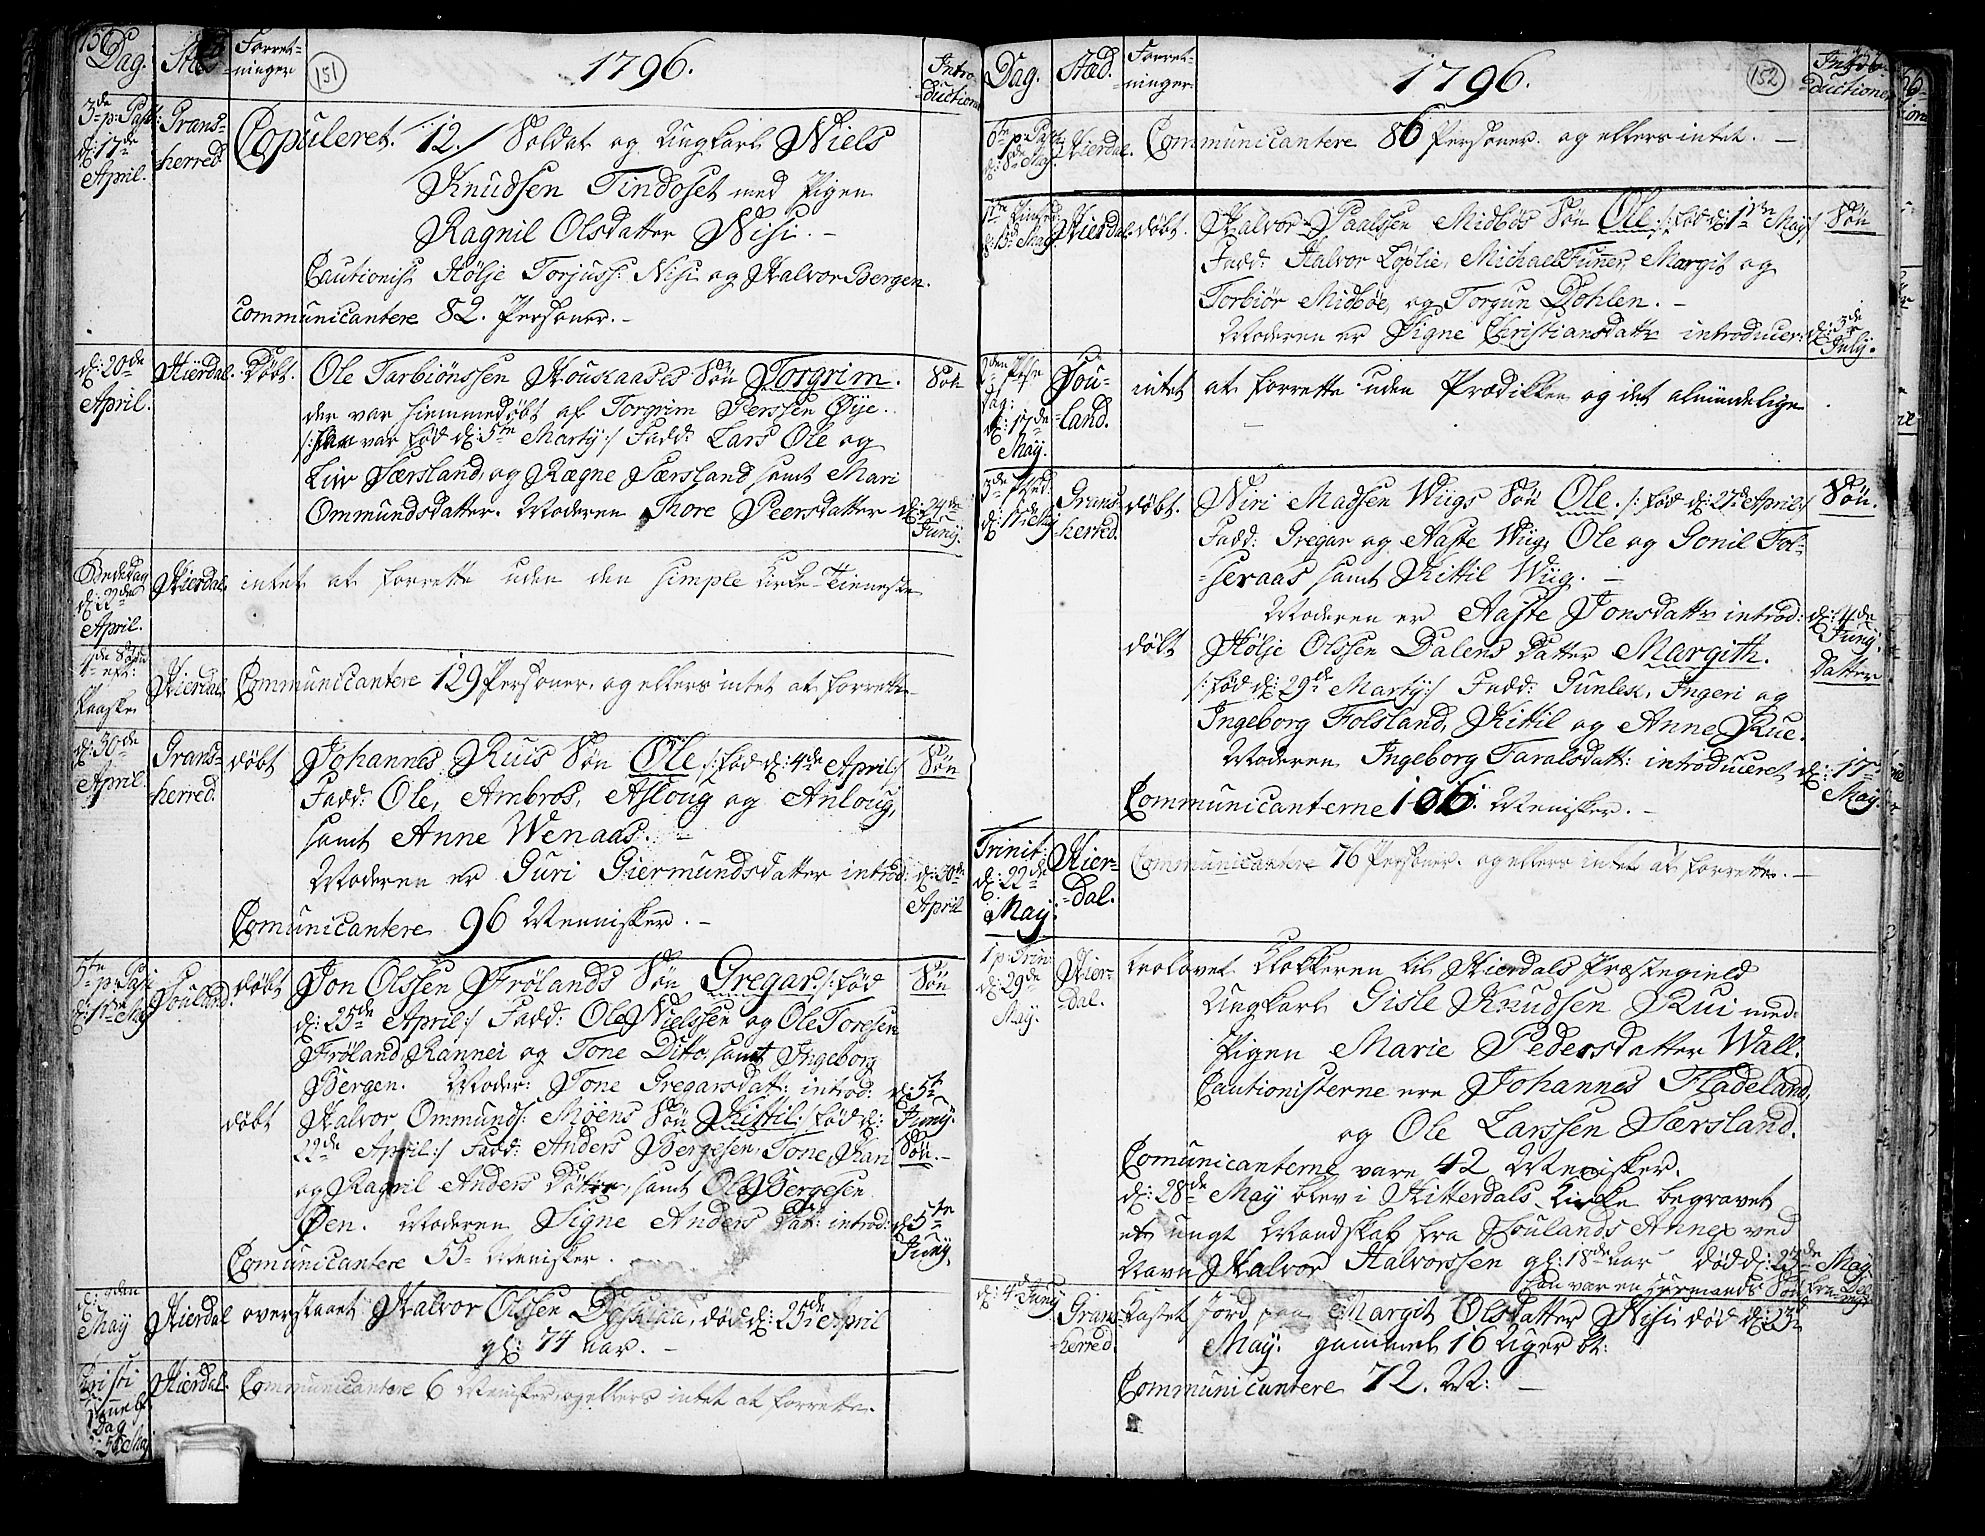 Dag.
Forret-
ninger
151
1796.
Intro
ductioner
3de p: Pask:
d: 17de
April.
Grans-
herred
Copuleret. 12. / Soldat og Ungkarl Niels
Knudsen Tindoset med Pigen
Ragnil Olsdatter Nisi. -
Cautionist: Hølje Torjuss: Nisi og Halvor Bergen.
Communicantere 82. Personer. -
d: 20de
April.
Hierdal.
Døbt.
Ole Tarbiönssen Houkaases Søn Torgrim.
Søn
der var hiemmedøbt af Torgrim Perssen Øÿe.
/: han var fød d: 5te Martÿ :/ Fadd: Lars Ole og
Liv Særsland, og Rægne Særsland samt Mari
Ommundsdatter. Moderen Thore Peersdatter
d: 24de
Junÿ.
Bededag
d: 22de
April.
Hierdal.
intet at forrette uden den simple Kirke-Tienneste
1de Søndag
eft:
Paaske
Hierdal.
Communicantere 129 Personer. og ellers intet at forrette
d: 30de
April.
Grans-
herred.
døbt
Johannes Ruis Søn Ole /: fød d: 4de April :/
Søn
Fadd: Ole, Ambros, Asloug og Anloug,
samt Anne Wenaas. -
Moderen er Guri Giermundsdatter introd:
d: 30te
April
Comunicantere 96 Mennisker. -
5te p: Pask:
d: 1te Maÿ
Houland.
døbt
Jon Olssen Frølands Søn Gregar /: fød
Søn
d: 25de April :/ Fadd: Ole Nielssen og Ole Toresen
Frøland, Rannei og Tone Dito, samt Ingeborg
Bergen. Moder: Tone Gregarsdatt: introd:
d: 5t
Junÿ.
døbt
Halvor Ommunds: Møens Søn Kittil /: fød d:
Søn. -
22de April :/ Fadd: Anders Bergesen, Tone Kari
og Ragnil Anders Døttre, samt Ole Bergesen
Øen. Moderen Signe Anders Dat: introd:
d: 5te
Junÿ.
Comunicantere 55 Menisker.
d: 2den
Maÿ
Hierdal
overstaaet Halvor Olssen, død d: 25de April
gl: 74 aar. -
Christi
Himmelf.
Dag
d: 5te Maj
Hierdal.
Communicantere 6 Menisker, og ellers intet at forrette.
Dag.
Stæd.
Forret-
ninger.
1796.
152
Intro-
ductioner
6te p: Pask:
d: 8de Maj
Hierdal.
Communicantere 86 Personer. og ellers intet. -
1te Pintsed:
d: 15de Maÿ
Hierdal
døbt.
Halvor Paalssen Midbøs Søn Ole /: fød d: 1te Maÿ :/
Søn
Fadd: Halvor Løvlie, Michael Tuner, Margit og
Torbiør Midbøe, og Torgun Dohlen. -
Moderen er Signe Christiansdattr introducer:
d: 3de
Julÿ.
2den Pintse
dag:
d: 17de
Maÿ.
Hou-
land.
intet at forrette uden Prædikken og det almindelige
3de
d: 17de Maÿ
Grans-
herred.
døbt.
Niri Madsen Wiigs Søn Ole. /: fød d: 27de April :/
Søn.
Fadd: Gregar og Aaste Wiig, Ole og Gonil Fol-
seraas samt Kittil Wiig. -
Moderen er Aaste Jonsdattr introd:
d: 4de
Junÿ.
døbt
Hølje Olssen Dalens Datter Margith.
Datter
/: fød d: 29de Martÿ :/ Fadd: Gunlek, Ingeri og
Ingeborg Folsland, Kittil og Anne Rue.
Moderen Ingeborg Taralsdatt: introduceret
d: 17de
Maÿ.
Communicanterne 106. Menisker. -
Trinit:
d: 22de
Maÿ.
Hier-
dal.
Communicantere 76 Personer. og ellers intet at forrette. -
1 p: Trin:
d: 29de
Maÿ.
Hier-
dal.
trolovet Klokkeren til Hierdals Præstegield
Ungkarl Gisle Knudsen Rui med
Pigen Marie Pedersdatter Wall.
Cautionisterne ere Johannes Fladeland,
og Ole Larssen Særsland.
Comunicanterne vare 42 Menisker.
d: 28de Maÿ blev i Hitterdals Kirke begravet
et ungt Mandskab fra Houlands Annex ved
Navn Halvor Halvorssen gl: 18de aar død d: 23de Maÿ.
han var en Huusmands Søn fra
d: 4de Junÿ
Grans-
herred.
kastet Jord paa Margit Olsdatter Nisi død d: 13de
Maÿ. gammel 16 Uger bt:
Communicantere 72. M: -